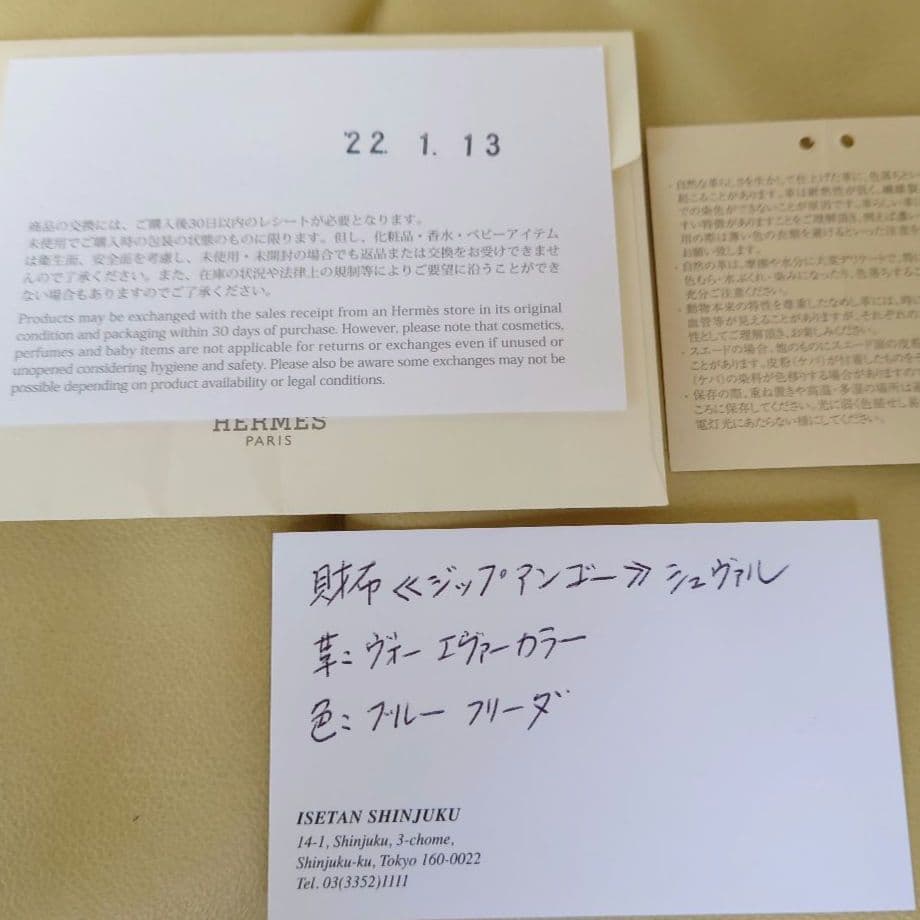 '22. 1. 13
商品の交換には、ご購入後30日以内のレシートが必要となります。
未使用でご購入時の包装の状態のものに限ります。但し、化粧品・香水・ベビーアイテム
は衛生面、安全面を考慮し、未使用・未開封の場合でも返品または交換をお受けできませ
んのでご了承ください。また、在庫の状況や法律上の規制等によりご要望に沿うことができ
ない場合もありますのでご了承ください。
Products may be exchanged with the sales receipt from an Hermès store in its original
condition and packaging within 30 days of purchase. However, please note that cosmetics,
perfumes and baby items are not applicable for returns or exchanges even if unused or
unopened considering hygiene and safety. Please also be aware some exchanges may not be
possible depending on product availability or legal conditions.
HERMES
PARIS
・自然な革らしさを生かして仕上げた革に、色落ちとい
起こることがあります。革は耐熱性が低く、繊維製
での染色ができないことが原因です。革らしい革
すい特徴がありますことをご理解頂き、例えば濃い
用の際は薄い色の衣類を避けるといった注意を
お願い致します。
・自然の革は、摩擦や水分に大変デリケートで、特に
色むら・水ぶくれ・染みになったり、色落ちする
充分ご注意ください。
・動物本来の特性を尊重したなめし革には、時に
血管等が見えることがありますが、それぞれの
性としてご理解頂き、お楽しみください。
・スエードの場合、他のものにスエード面の皮粉
ことがあります。皮粉(ケバ)が付着したものを
(ケバ)の染料が色移りする場合がありますので
・保存の際、重ね置きや高温・多湿の場所は
ころに保存してください。光に弱く色褪せし易
電灯光にあたらない様にしてください。
財布≪ジップアンゴー≫シュヴァル
革:ヴォー エヴァーカラー
色:ブルー フリーダ
ISETAN SHINJUKU
14-1, Shinjuku, 3-chome,
Shinjuku-ku, Tokyo 160-0022
Tel. 03(3352)1111